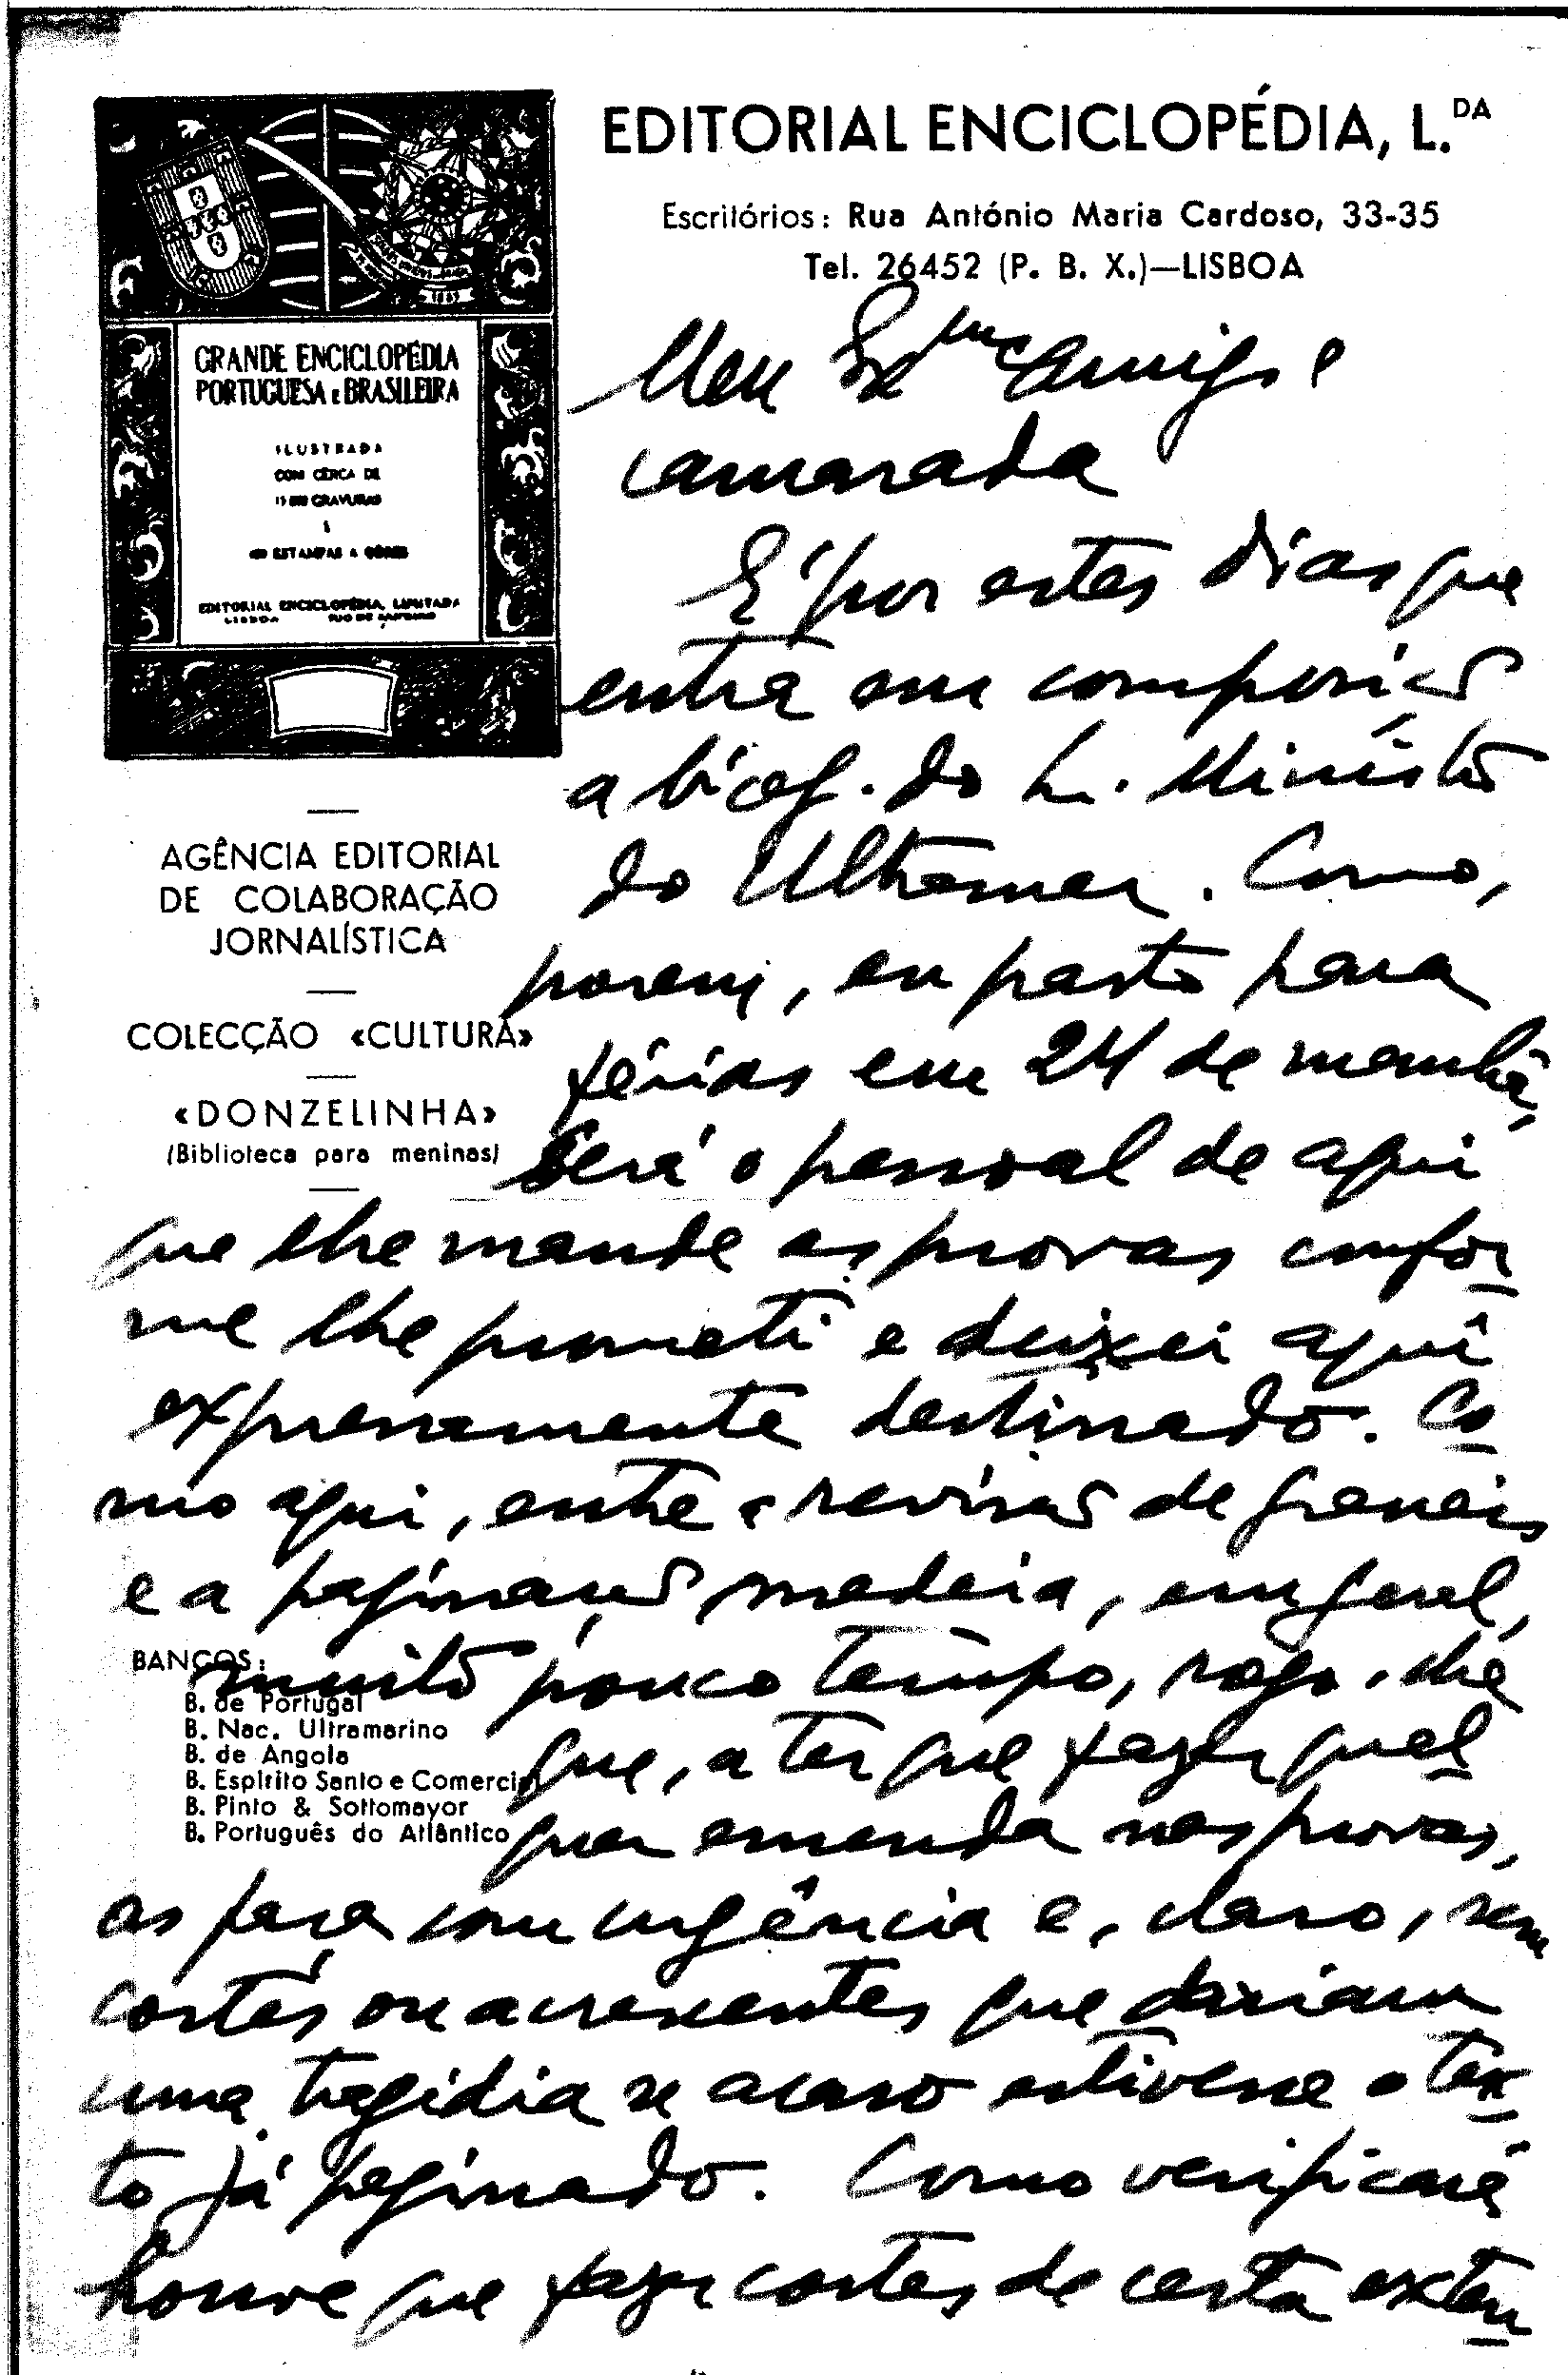 EDITORIAL ENCICLOPÉDIA, L.DA
Escritórios: Rua António Maria Cardoso, 33-35
Tel. 26452 (P. B. X.)—LISBOA
GRANDE ENCICLOPÉDIA
PORTUGUESA E BRASILEIRA
ILUSTRADA
COM CÊRCA DE
15 000 GRAVURAS
E
400 ESTAMPAS A CÔRES
EDITORIAL ENCICLOPÉDIA, LIMITADA
LISBOA RIO DE JANEIRO
AGÊNCIA EDITORIAL
DE COLABORAÇÃO
JORNALÍSTICA
COLECÇÃO «CULTURA»
«DONZELINHA»
(Biblioteca para meninas)
BANCOS:
B. de Portugal
B. Nac. Ultramarino
B. de Angola
B. Espírito Santo e Comercial
B. Pinto & Sottomayor
B. Português do Atlântico
Meu Exmo Amigo e
camarada
É por estes dias que
entra em composição
a biog. do Sr. Ministro
do Ultramar. Como,
porem, eu parto para
férias em 24 de manhã,
será o pessoal de aqui
que lhe mande as provas confor-
me lhe prometi e deixei aqui
expressamente destinado. Co-
mo aqui, entre a revisão de graneis
e a paginação, medeia, em geral,
muito pouco tempo, rogo-lhe
que, a ter que fazer qual-
quer emenda nas provas,
as faça com urgência e, claro, sem
cortes ou acrescentes que dariam
uma tragédia se acaso estivesse o tex-
to já paginado. Como verificará
houve que fazer cortes de certa exten-